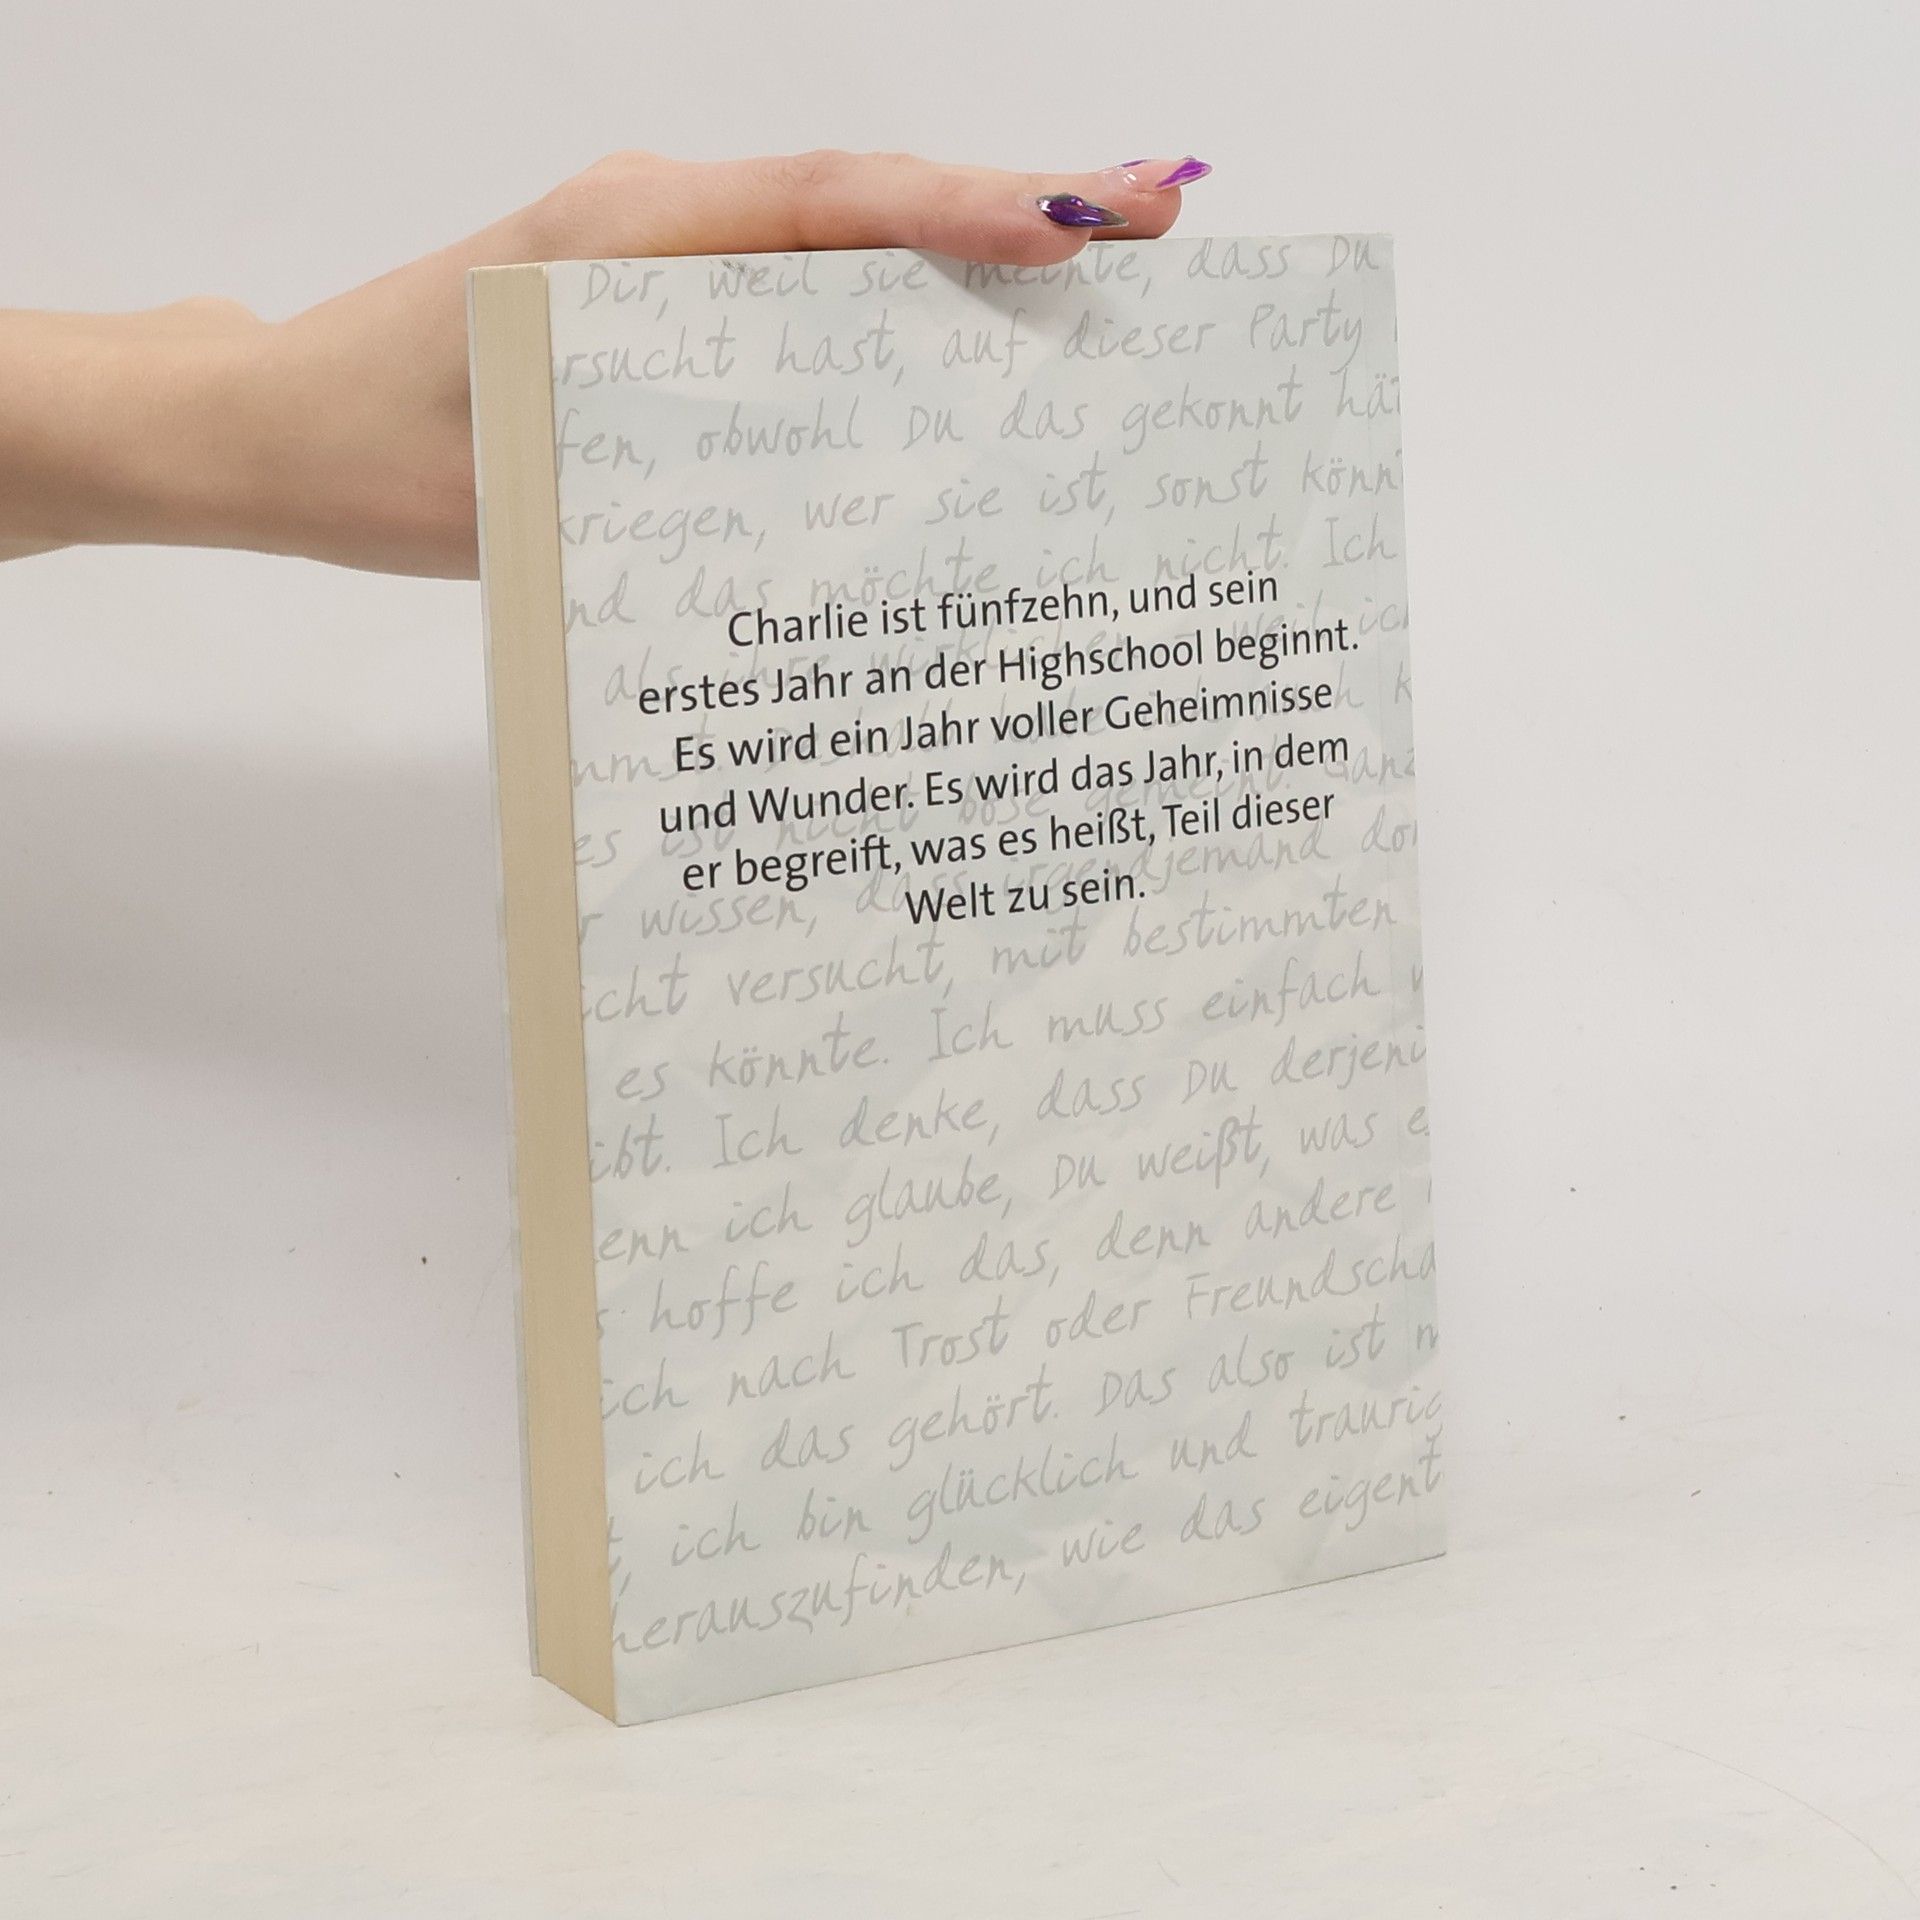 Dir, weil sie meinte, dass Du
rsucht hast, auf dieser Party
fen, obwohl Du das gekonnt hät
kriegen, wer sie ist, sonst könnt
nd das möchte ich nicht. Ich
Charlie ist fünfzehn, und sein
erstes Jahr an der Highschool beginnt.
Es wird ein Jahr voller Geheimnisse
und Wunder. Es wird das Jahr, in dem
er begreift, was es heißt, Teil dieser
Welt zu sein.
wissen, dass irgendjemand
icht versucht, mit bestimmten
es könnte. Ich muss einfach
ibt. Ich denke, dass Du derjeni
enn ich glaube, Du weißt, was e
hoffe ich das, denn andere
ich nach Trost oder Freundscha
ich das gehört. Das also ist m
t, ich bin glücklich und traurig
herauszufinden, wie das eigent